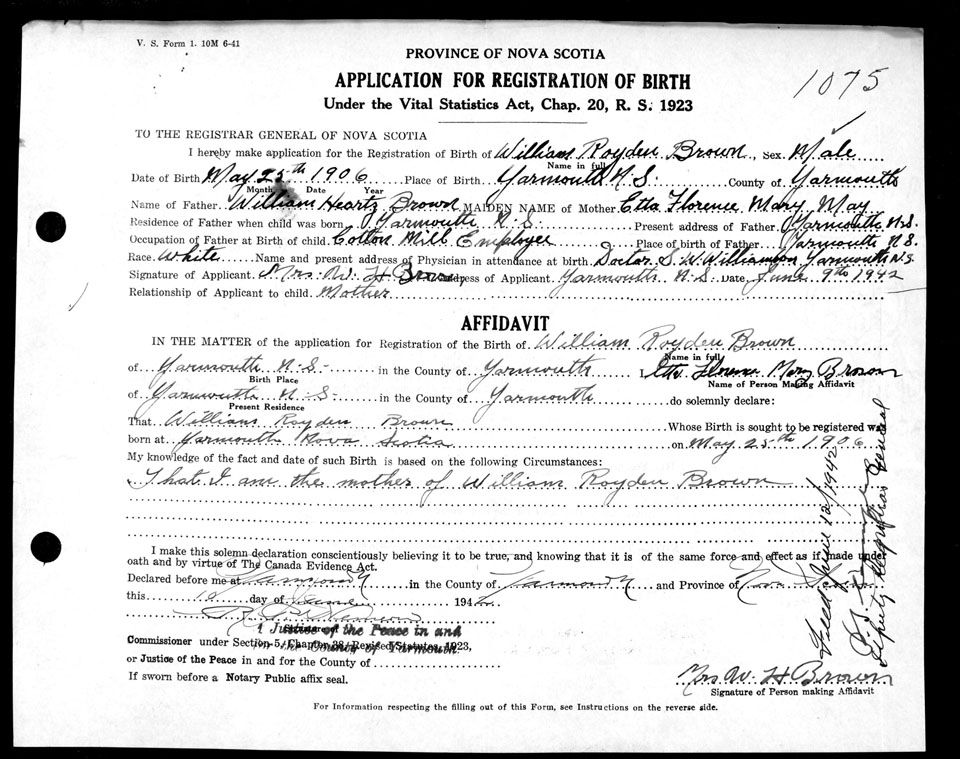 V. S. Form 1. 10M 6-41
PROVINCE OF NOVA SCOTIA
APPLICATION FOR REGISTRATION OF BIRTH
1075
Under the Vital Statistics Act, Chap. 20, R. S. 1923
TO THE REGISTRAR GENERAL OF NOVA SCOTIA
I hereby make application for the Registration of Birth of William Royden Brown, Sex Male
Name in full
Date of Birth May 25th 1906 Place of Birth Yarmouth N.S. County of Yarmouth
Month Date Year
Name of Father William Heartz Brown MAIDEN NAME of Mother Etta Florence Mary May
Residence of Father when child was born Yarmouth N.S. Present address of Father Yarmouth N.S.
Occupation of Father at Birth of child Cotton Mill Employee Place of birth of Father Yarmouth N.S.
Race White Name and present address of Physician in attendance at birth Doctor S. W. Williamson Yarmouth N.S.
Signature of Applicant Mrs. W. H Brown Address of Applicant Yarmouth N.S. Date June 9th 1942
Relationship of Applicant to child Mother
AFFIDAVIT
IN THE MATTER of the application for Registration of the Birth of William Royden Brown
Name in full
of Yarmouth N.S. in the County of Yarmouth I Etta Florence Mary Brown
Birth Place Name of Person Making Affidavit
of Yarmouth N.S. in the County of Yarmouth do solemnly declare:
Present Residence
That William Royden Brown Whose Birth is sought to be registered was
born at Yarmouth Nova Scotia on May 25th 1906
My knowledge of the fact and date of such Birth is based on the following Circumstances:
That I am the mother of William Royden Brown
I make this solemn declaration conscientiously believing it to be true, and knowing that it is of the same force and effect as if made under
oath and by virtue of The Canada Evidence Act.
Declared before me at Yarmouth in the County of Yarmouth and Province of Nova Scotia
this 10 day of June 1942
A Justice of the Peace in and
for the County of Yarmouth
Commissioner under Section 5, Chapter 38, Revised Statutes, 1923,
or Justice of the Peace in and for the County of
If sworn before a Notary Public affix seal.
Mrs W. H Brown
Signature of Person making Affidavit
For Information respecting the filling out of this Form, see Instructions on the reverse side.
Filed 12/1942
Deputy Registrar General